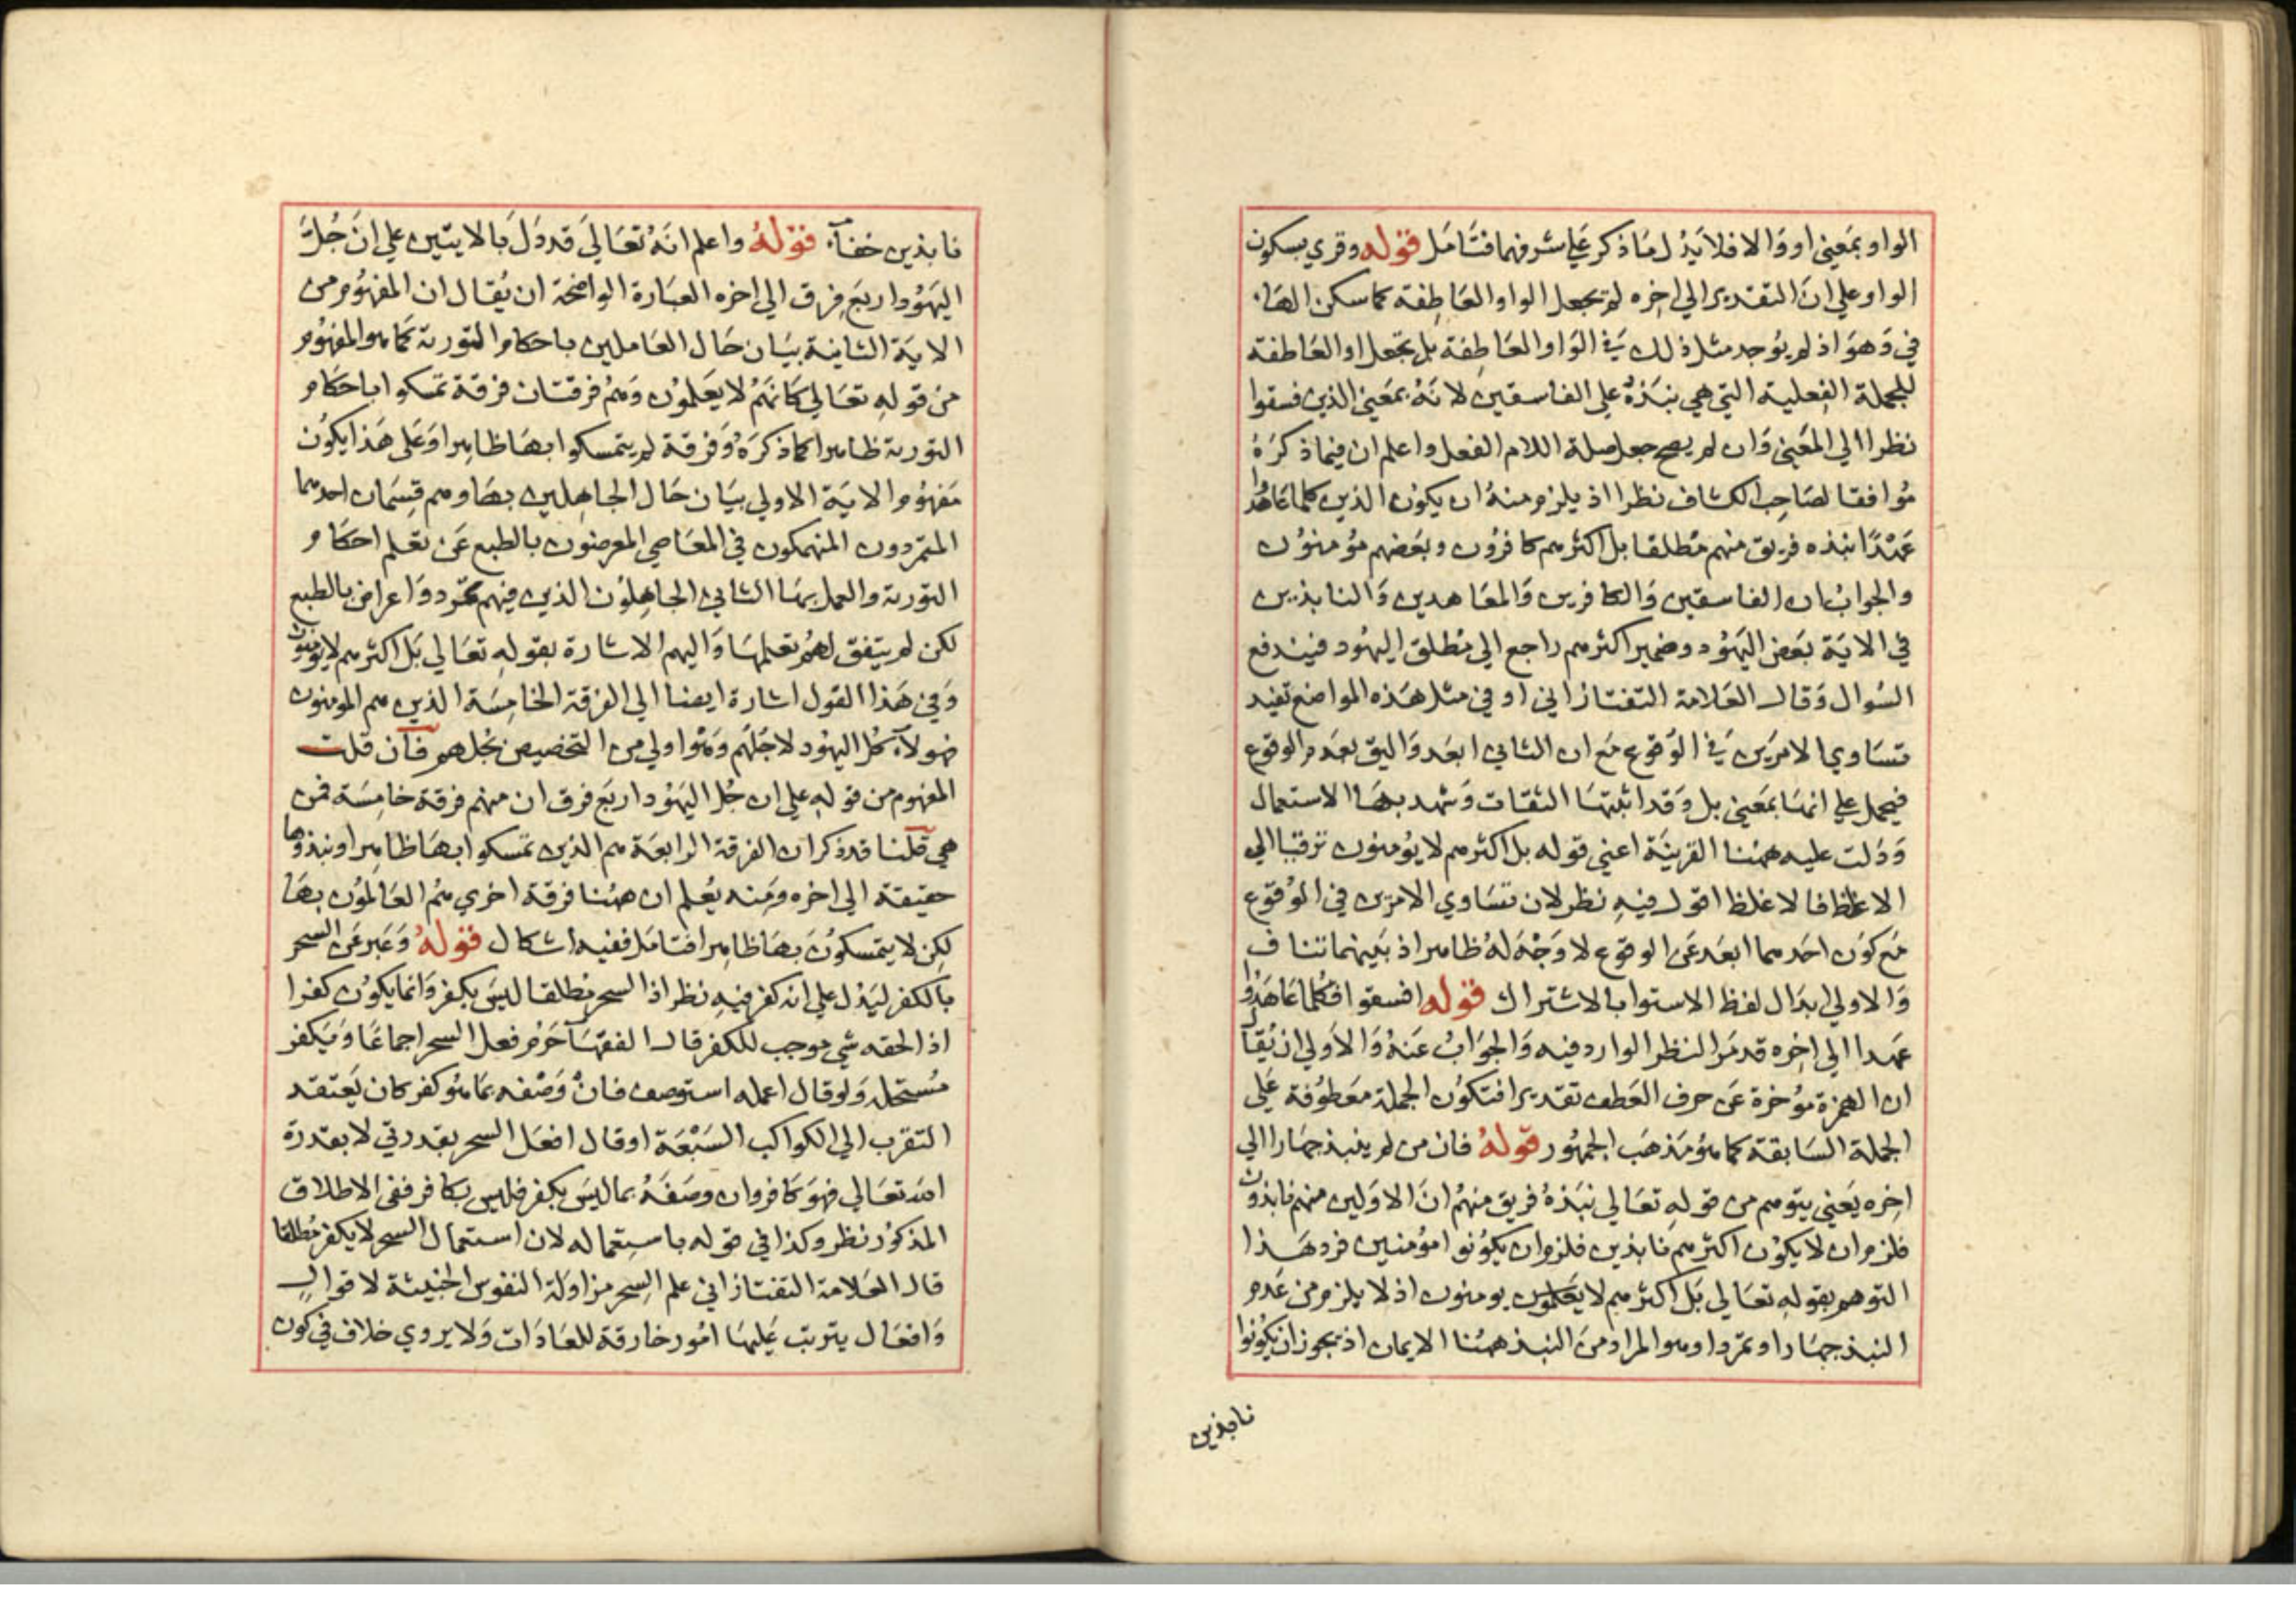 الواو بمعني او والا فلا يدل ما ذكر علي شرفهما فتامل قوله وقري بسكون
الواو علي ان التقدير الي اخره لم تجعل الواو العاطفة كما سكن الهاء
في وهو اذ لم يوجد مثل ذلك في الواو العاطفة بل تجعل او العاطفة
للجملة الفعلية التي هي نبذه علي الفاسقين لانه بمعني الذين فسقوا
نظرا الي المعني وان لم يصح جعل صلة اللام الفعل واعلم ان فيما ذكره
موافقا لصاحب الكشاف نظرا اذ يلزم منه ان يكون الذين كلما عاهدوا
عهدا نبذه فريق منهم مطلقا بل اكثرهم كافرون وبعضهم مؤمنون
والجواب ان الفاسقين والكافرين والمعاهدين والنابذين
في الاية بعض اليهود وضمير اكثرهم راجع الي مطلق اليهود فيندفع
السوال وقال العلامة التفتازاني او في مثل هذه المواضع تفيد
تساوي الامرين في الوقوع مع ان الثاني ابعد واليق بعدم الوقوع
فيحمل علي انها بمعني بل وقد اثبتها الثقات وشهد بها الاستعمال
ودلت عليه ههنا القرينة اعني قوله بل اكثرهم لا يؤمنون ترقيا الي
الاغلظ فالاغلظ اقول فيه نظر لان تساوي الامرين في الوقوع
مع كون احدهما ابعد عن الوقوع لا وجه له ظاهر اذ بينهما تناف
والاولي ابدال لفظ الاستوا بالاشتراك قوله افسقوا فكلما عاهدوا
عهدا الي اخره قد مر النظر الوارد فيه والجواب عنه والاولي ان يقال
ان الهمزة مؤخرة عن حرف العطف تقديرا فتكون الجملة معطوفة علي
الجملة السابقة كما هو مذهب الجمهور قوله فان من لم ينبذ جهارا الي
اخره يعني يتوهم من قوله تعالي نبذه فريق منهم ان الاولين منهم نابذون
فلزم ان لا يكون اكثرهم نابذين فلزم ان يكونوا مؤمنين فرد هذا
التوهم بقوله تعالي بل اكثرهم لا يعلمون يومنون اذ لا يلزم من عدم
النبذ جهارا وتمردا وهو المراد من النبذ ههنا الايمان اذ يجوز ان يكونوا
نابذين
نابذين خفآء قوله واعلم انه تعالي قد دل بالايتين علي ان جل
اليهود اربع فرق الي اخره العبارة الواضحة ان يقال ان المفهوم من
الاية الثانية بيان حال العاملين باحكام التورية كما هو المفهوم
من قوله تعالي كانهم لا يعلمون وهم فرقتان فرقة تمسكوا باحكام
التورية ظاهرا كما ذكره وفرقة لم يتمسكوا بها ظاهرا وعلي هذا يكون
مفهوم الاية الاولي بيان حال الجاهلين بها وهم قسمان احدهما
المتمردون المنهمكون في المعاصي المعرضون بالطبع عن تعلم احكام
التورية والعمل بها الثاني الجاهلون الذين فيهم تمرد واعراض بالطبع
لكن لم يتفق لهم تعلمها واليهم الاشارة بقوله تعالي بل اكثرهم لا يؤمنون
وفي هذا القول اشارة ايضا الي الفرقة الخامسة الذين هم المومنون
فهولاء كل اليهود لا جلهم وهو اولي من التخصيص بجلهم فان قلت
المفهوم من قوله علي ان جل اليهود اربع فرق ان منهم فرقة خامسة فمن
هي قلنا قد ذكر ان الفرقة الرابعة هم الذين تمسكوا بها ظاهرا ونبذوها
حقيقة الي اخره ومنه يعلم ان ههنا فرقة اخري هم العالمون بها
لكن لا يتمسكون بها ظاهرا فتامل ففيه اشكال قوله وعبر عن السحر
بالكفر ليدل علي انه كفر فيه نظر اذ السحر مطلقا ليس بكفر وانما يكون كفرا
اذا لحقه شي موجب للكفر قال الفقهآ حرم فعل السحر اجماعا ويكفر
مستحله ولو قال اعمله استوصف فان وصفه بما هو كفر كان يعتقد
التقرب الي الكواكب السبعة او قال افعل السحر بقدرتي لا بقدرة
الله تعالي فهو كافر وان وصفه بما ليس بكفر فليس بكافر ففي الاطلاق
المذكور نظر وكذا في قوله باستعماله لان استعمال السحر لا يكفر مطلقا
قال العلامة التفتازاني علم السحر مزاولة النفوس الخبيثة لاقوال
وافعال يترتب عليها امور خارقة للعادات ولا يروي خلاف في كون